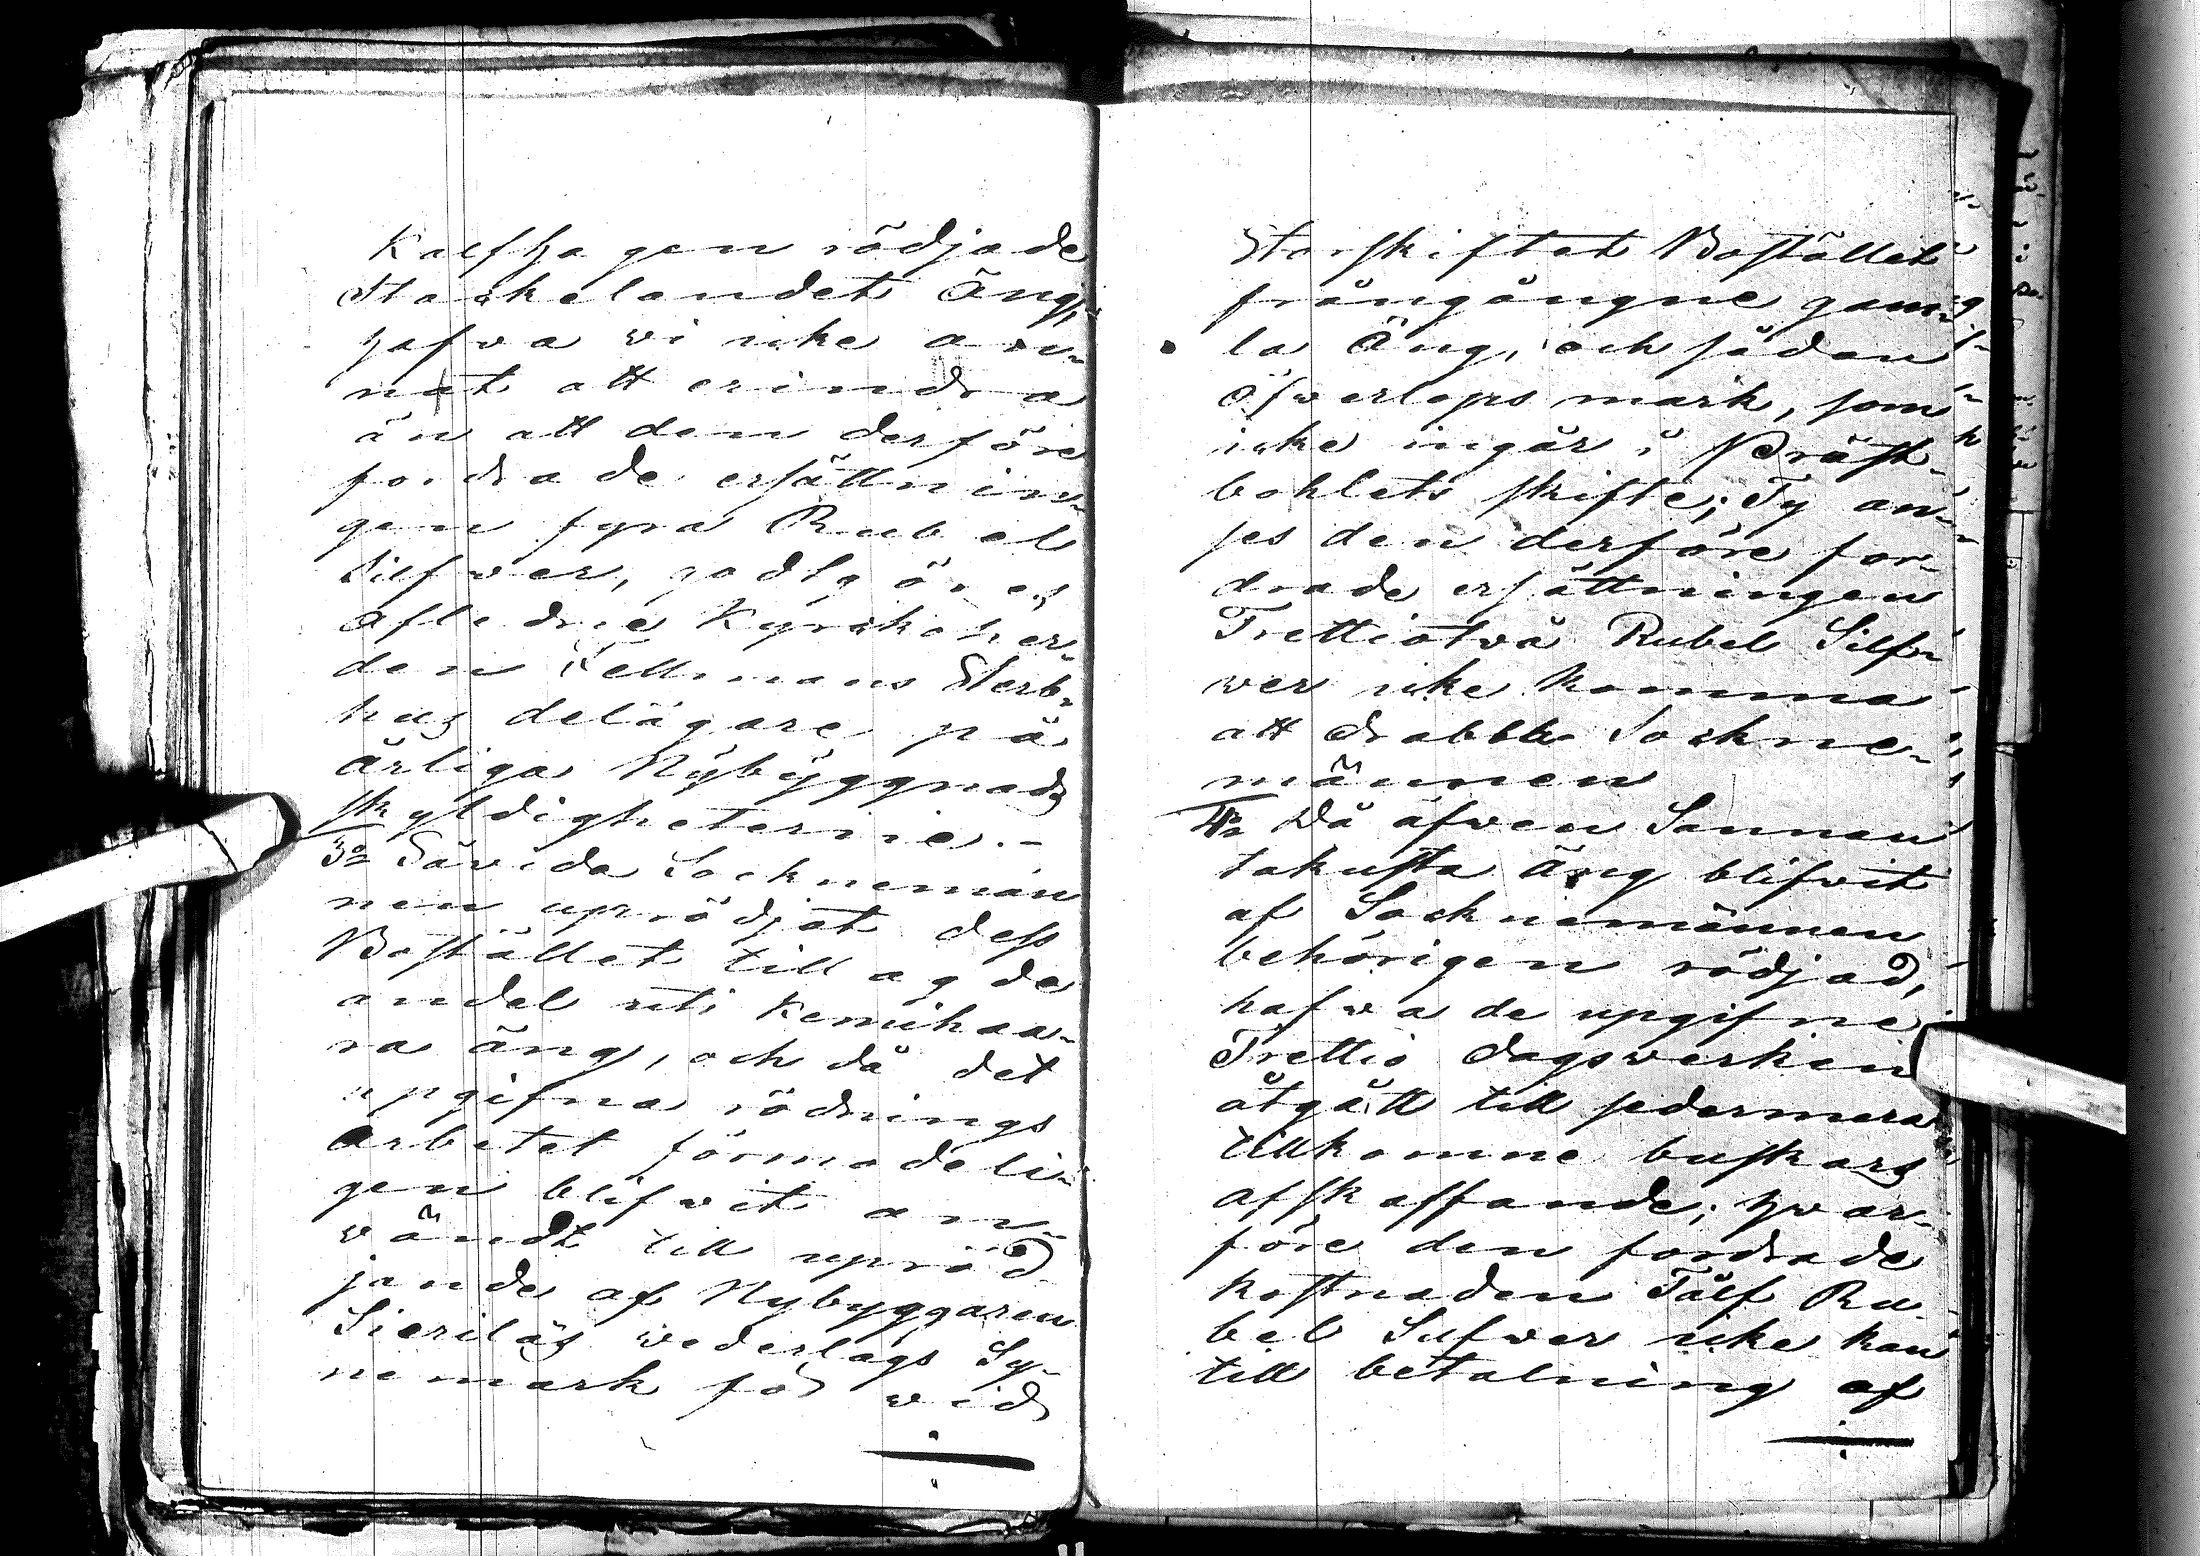 Kalfhagen rödjade
Stackelandet Äng,
hafva wi icke an-
nat att erindra
än att den derföre
fordrade ersättnin-
gen fyra Rubel
Silfwer, godtgöres
Aflidne Kyrckoher-
den Fellmans Sterb-
hus delägare på
årliga Nybyggnads
skyldigheterne.-
3o Såvida Socknemän
nen uprödjat dess
Bostället tillagde
andel uti Kemihaa-
ra äng, och då det
upgifna rödnings
arbetet förmodeli-
gen blifwit an-
wändt till upröd
jande af Nybyggaren
Sieriläs wederlags Sy-
nemark för wid
Storskiftet Bostället
frångångne gam-
la Äng, och sådan
öfwerlops mark, som
icke ingår i Präst-
bohlets skifte; Ty an-
ses den derföre for-
drade ersättningen
Trettiotvå Rubel Silf-
wer icke komma
att drabba Sockne-
männen
4o Då äfwen Sannan
takusta äng blifvit
af Socknemännen
behörigen rödjad,
hafwa de upgifne
Trettio dagswerken
åtgått till sedermera
tillkomne buskars
afskaffande; hwar-
före den fordrade
kostnaden Tålf Ru-
bel Silfwer icke kan
till betalning af